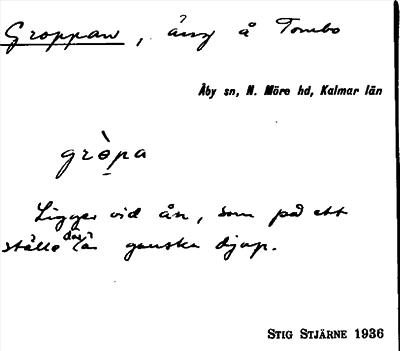 Groppan, äng å Tombo
Åby sn, N. Möre hd, Kalmar län
gròpa
Ligger vid ån, som på ett
ställe där är ganska djup.
STIG STJÄRNE 1936